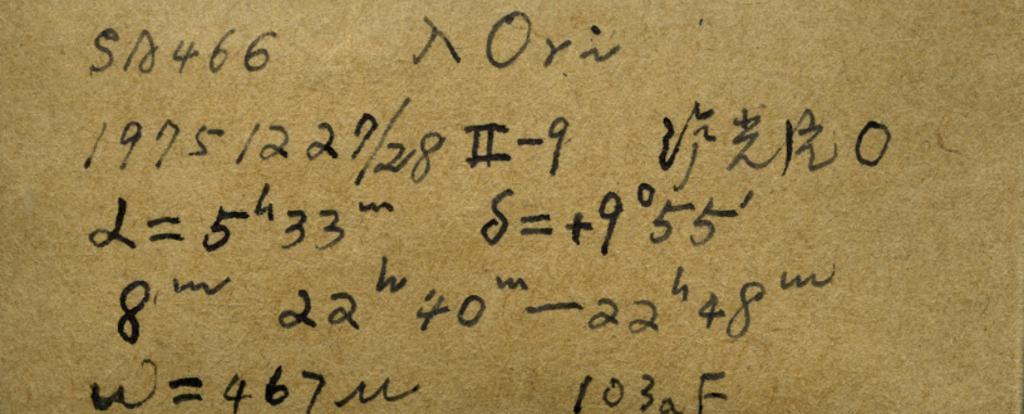 SA466 λ Ori
1975 12 27/28 II-9 珍光片 0
α = 5ʰ33ᵐ δ = +9°55′
8ᵐ 22ʰ40ᵐ—22ʰ48ᵐ
W = 467μ 103aF